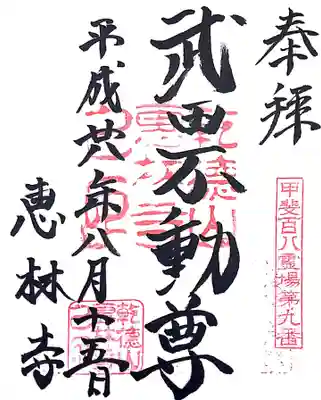 奉拝
甲斐百八霊場第九番
武田不動尊
乾徳山
平成廿八年八月十五日
恵林寺